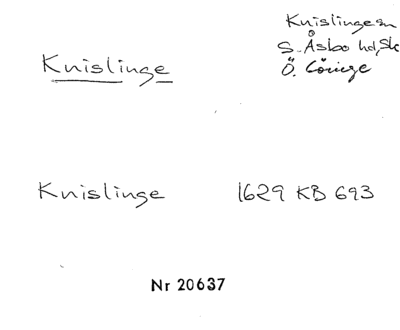 Knislinge sn
S. Åsbo hd, Sk
Ö. Göinge
Knislinge
Knislinge 1629 KB 693
Nr 20637